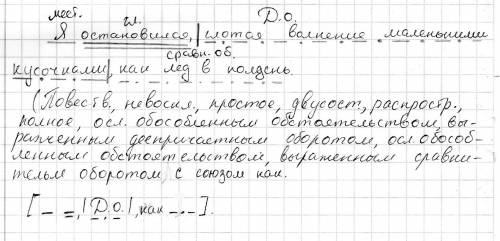 мест. гл. Д.О.
Я остановился, | глотая волнение маленькими
сравн. об.
кусочками | как лед в полдень.
(Повеств., невоскл, простое, двусост, распростр.,
полное, осл. обособленным обстоятельством, вы-
раженным деепричастным оборотом, осл. обособ-
ленным обстоятельством, выраженным сравни-
тельм оборотом с союзом как.
[— =, | Д.О. |, как —.—].